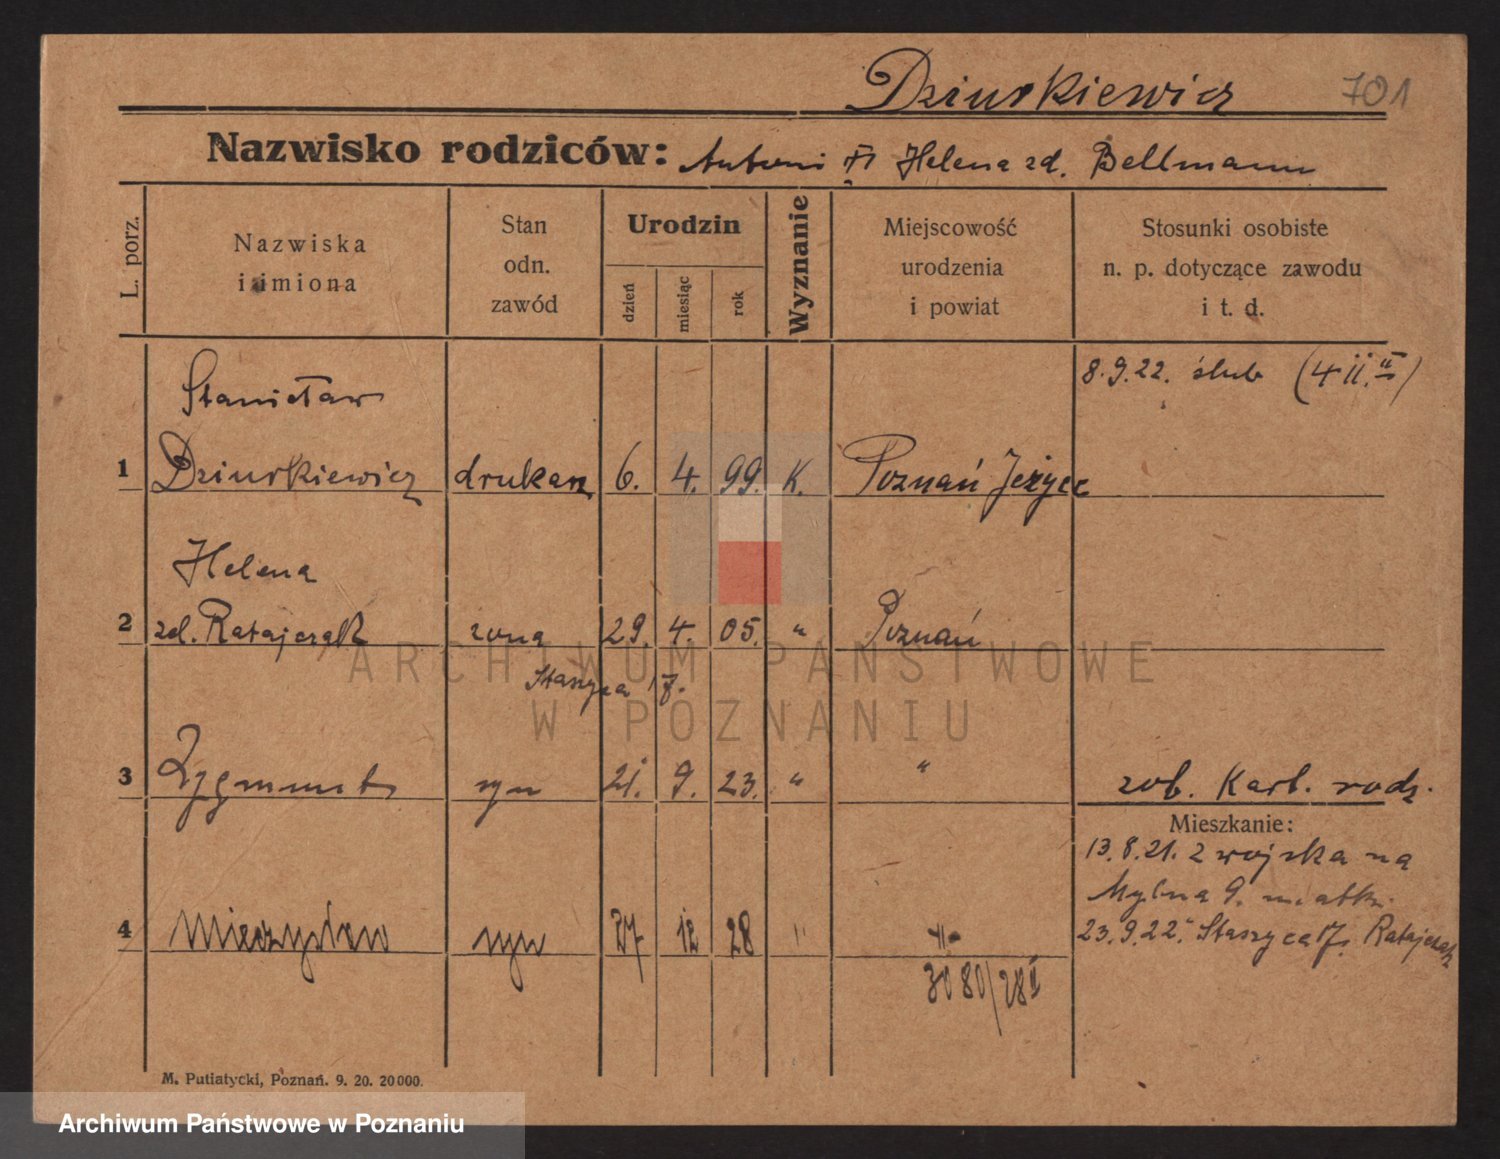 Dziurkiewicz 701
Nazwisko rodziców: Antoni Helena zd. Bellmann
L. porz.
Nazwiska
i imiona
Stan
odn.
zawód
Urodzin
dzień
miesiąc
rok
Wyznanie
Miejscowość
urodzenia
i powiat
Stosunki osobiste
n. p. dotyczące zawodu
i t. d.
8.9.22. ślub
Stanisław
1 Dziurkiewicz drukarz 6. 4. 99. K. Poznań Jeżyce
Helena
2 zd. Ratajczak żona 29. 4. 05. " Poznań
Staszyca 17.
3 Zygmunt syn 21. 9. 23. " " zob. Kart. rodz.
Mieszkanie:
13.8.21. z wojska na
Mylna 9. matki.
4 Mieczysław syn 27 12 28 " "
23.9.22. Staszyca 17. Ratajczak
3080/28 II
M. Putiatycki, Poznań. 9. 20. 20000.
ARCHIWUM PAŃSTWOWE
W POZNANIU
Archiwum Państwowe w Poznaniu